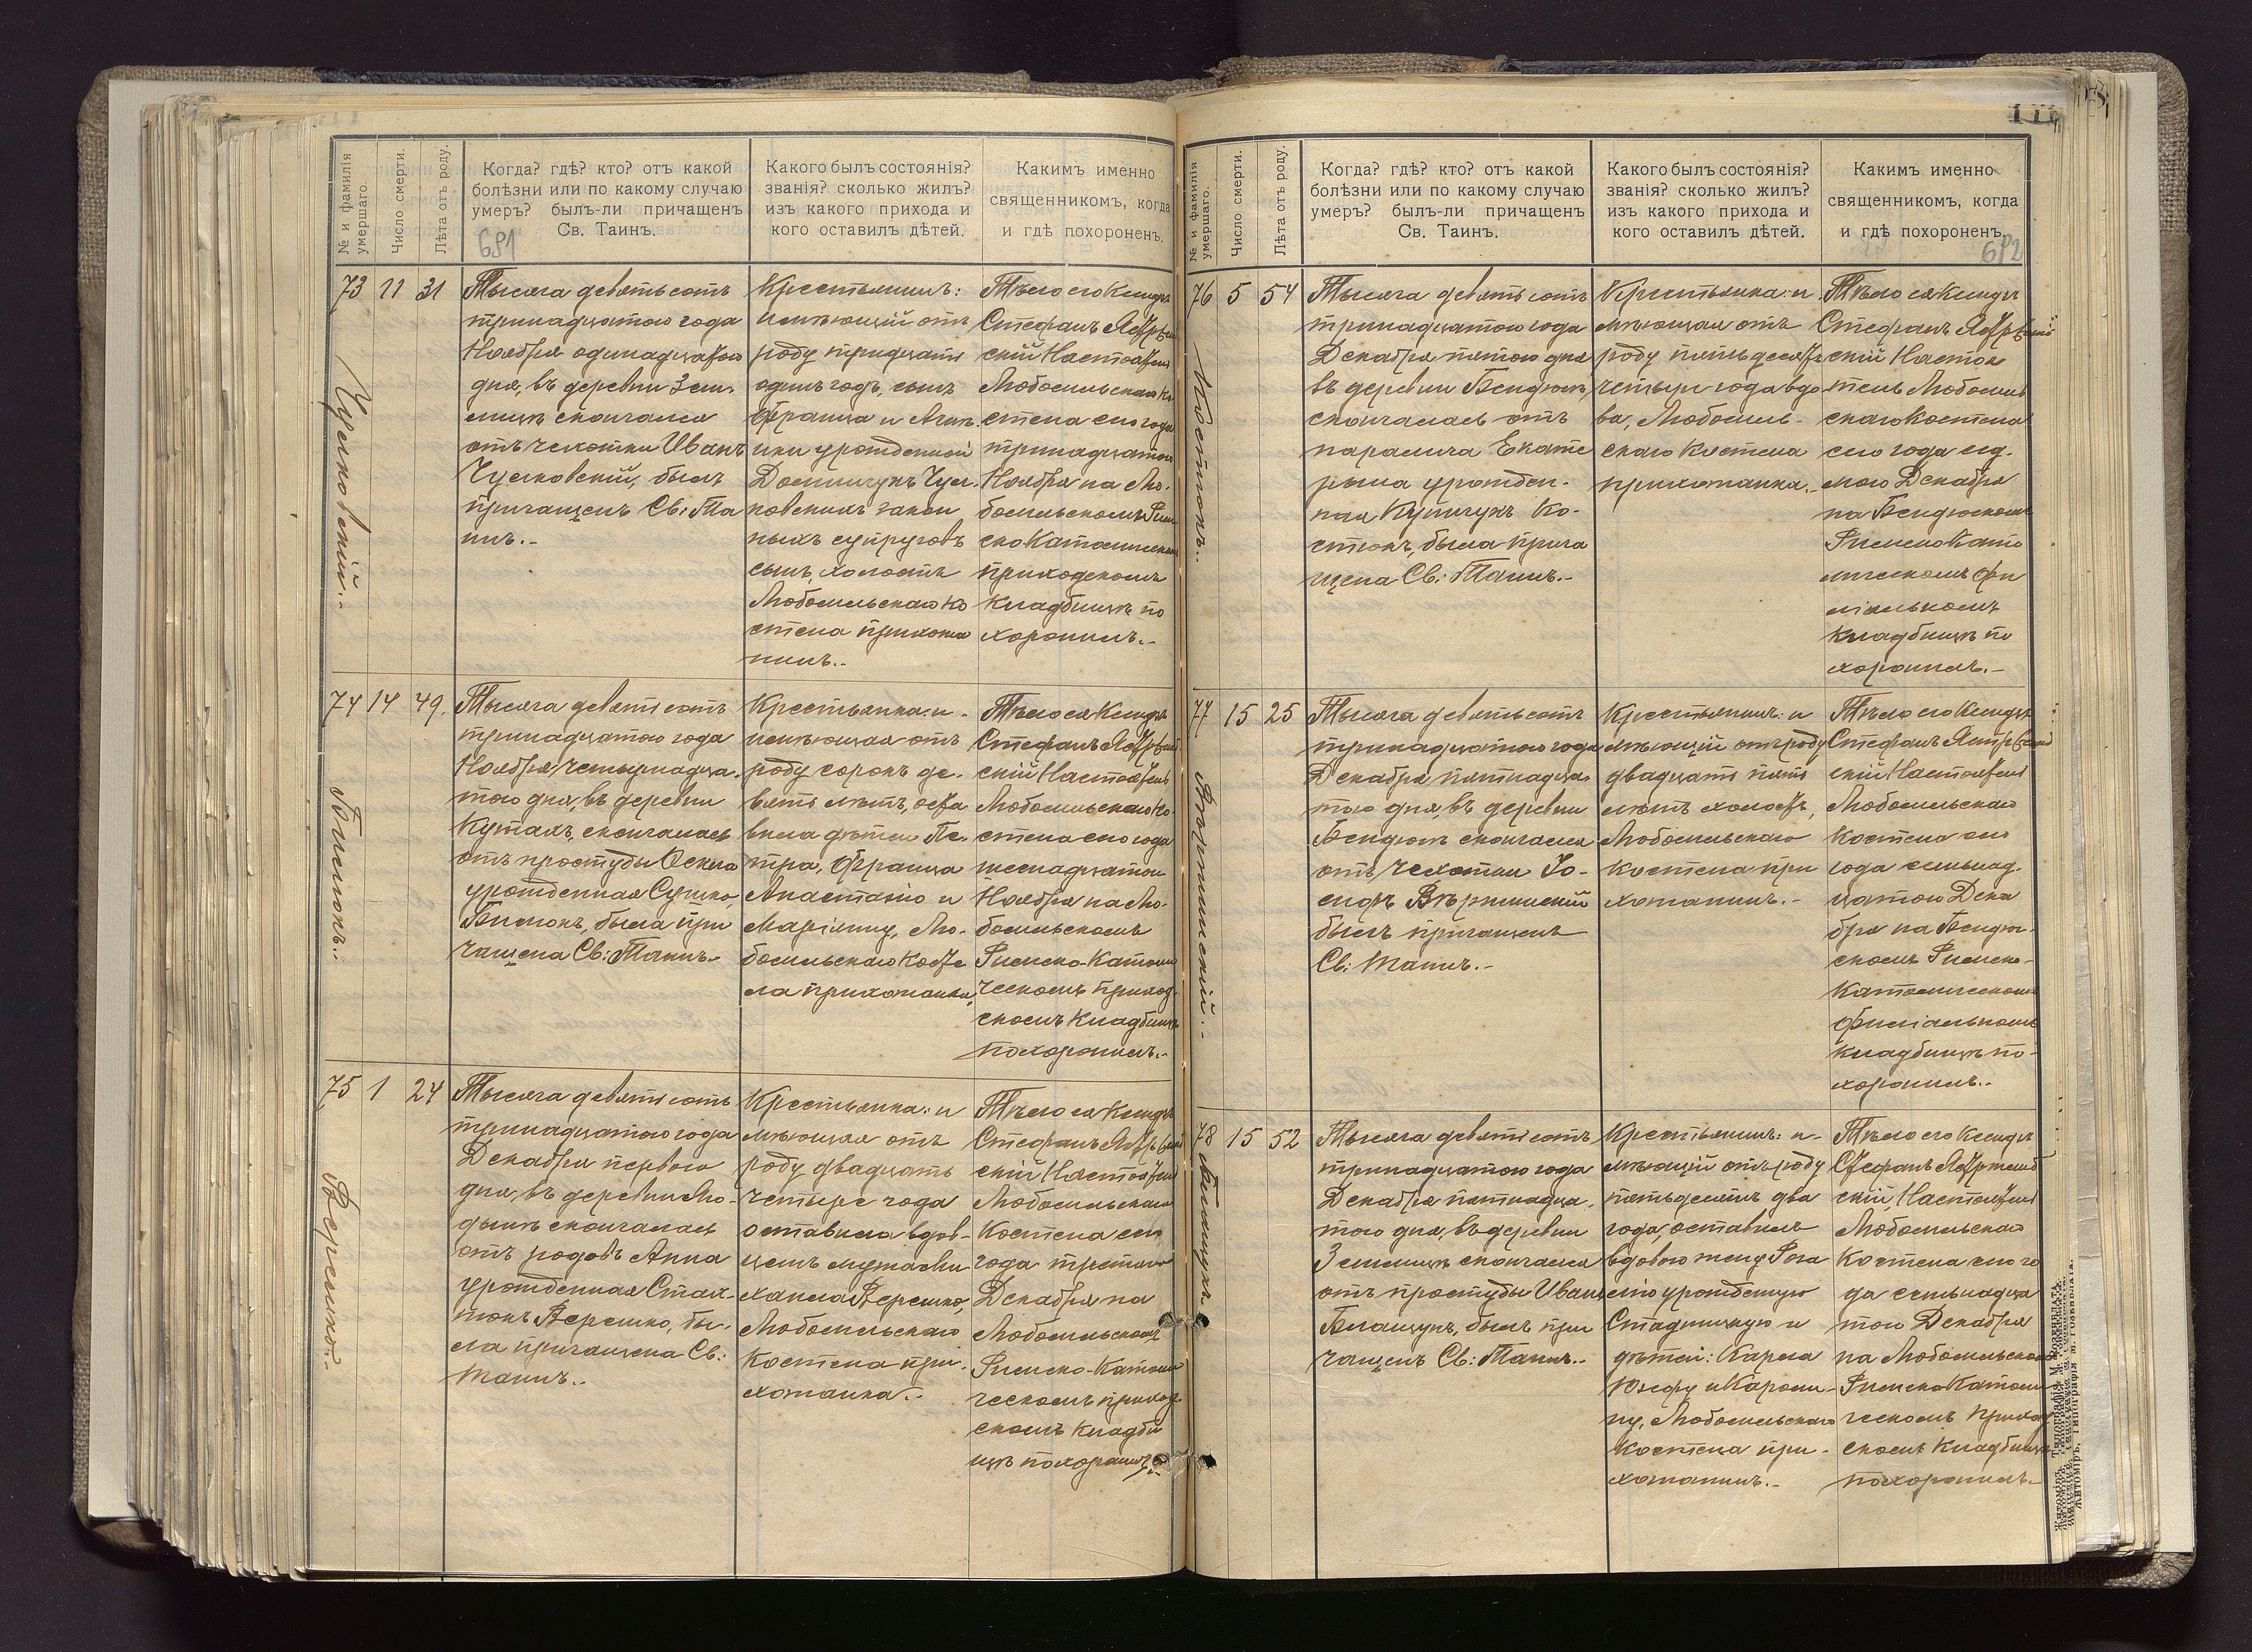 № и фамилія умершаго.
Число смерти.
Лѣта отъ роду.
Когда? гдѣ? кто? отъ какой
болѣзни или по какому случаю
умеръ? былъ-ли причащенъ
Св. Таинъ.
681
Какого былъ состоянія?
званія? сколько жилъ?
изъ какого прихода и
кого оставилъ дѣтей.
Каким именно
священникомъ, когда
и гдѣ похороненъ.
73 11 31
Тысяча девятьсотъ
тринадцатого года
Ноября одинадцатого
дня, въ деревни Зем-
лицѣ скончался
отъ чехотки Иванъ
былъ
причащенъ Св: Та
инъ.-
Крестьянинъ:
имѣющій отъ
роду тридцать
одинъ годъ, сынъ
Франца и
урожденной
закон
ныхъ супруговъ
сынъ, холостъ
Любомльскаго ко
стела прихожа
нинъ.-
Тѣло его Ксендзъ
Стефанъ
скій Настоятель
Любомльскаго Ко
стела сего года
тринадцатого
Ноября на Лю-
бомльскомъ Рим
скоКатолическом
приходскомъ
Кладбищѣ по
хоронилъ.-
74 14 49.
Бисюкъ.-
Тысяча девятьсотъ
тринадцатого года
Ноября четырнадца-
того дня, въ деревни
Кутахъ, скончалась
отъ простуды
урожденная Сушко,
была при
чащена Св: Таинъ.-
Крестьянка: и-
мѣющая отъ
роду сорокъ де-
вять лѣтъ, оста
вила дѣтей Пе-
тра, Франца
Анастасію и
Маріянну, Лю-
бомльскаго Косте
ла прихожанка,
Тѣло ея Ксендзъ
Стефанъ
скій Настоятель
Любомльскаго Ко-
стела сего года
шеснадцатого
Ноября на Лю-
бомльскомъ
Римско-Католи
ческомъ приход-
скомъ Кладбищѣ
похоронилъ.-
75 1 24
Верешко.-
Тысяча девятьсотъ
тринадцатого года
Декабря перваго
дня, въ деревни Лю-
дымѣ скончалась
отъ родовъ Анна
урожденная
Верешко, бы-
ла причащена Св:
Таинъ.-
Крестьянка: и
мѣющая отъ
роду двадцать
четыре года
оставила вдов-
цемъ мужа Ми
хаила Верешко,
Любомльскаго
Костела при-
хожанка.-
Тѣло ея Ксендзъ
Стефанъ
скій Настоятель
Любомльскаго
Костела сего
года третьяго
Декабря на
Любомльскомъ
Римско-Католи
ческомъ приход-
скомъ Кладби
щѣ похоронилъ.-
№ и фамилія умершаго.
Число смерти.
Лѣта отъ роду.
Когда? гдѣ? кто? отъ какой
болѣзни или по какому случаю
умеръ? былъ-ли причащенъ
Св. Таинъ.
Какого былъ состоянія?
званія? сколько жилъ?
изъ какого прихода и
кого оставилъ дѣтей.
Каким именно
священникомъ, когда
и гдѣ похороненъ.
682
76 5 54
Костюкъ.
Тысяча девятьсотъ
тринадцатого года
Декабря пятого дня
въ деревни Бендюгѣ,
скончалась отъ
паралича Екате
рина урожден-
ная Ко-
стюкъ, была прича
щена Св: Таинъ.-
Крестьянка: и
мѣющая отъ
роду пятьдесятъ
четыри года вдо
ва, Любомль-
скаго Костела
прихожанка.-
Тѣло ея Ксендзъ
Стефанъ
скій Настоя
тель Любомль
скаго Костела
сего года сед-
мого Декабря
на Бендюскомъ
РимскоКато
лическомъ Фи
ліяльномъ
Кладбищѣ по
хоронилъ.-
77 15 25
Тысяча девятьсотъ
тринадцатого года
Декабря пятнадца-
того дня, въ деревни
Бендюгѣ скончался
отъ чехотки Іо-
сифъ
былъ причащенъ
Св: Таинъ.-
Крестьянинъ: и
мѣющій отъ роду
двадцать пять
лѣтъ холостъ,
Любомльскаго
Костела при
хожанинъ.-
Тѣло его Ксендзъ
Стефанъ
скій Настоятель
Любомльскаго
Костела сего
года семьнад-
цатого Дека
бря на Бендю-
скомъ Римско-
Католическомъ
Филіяльномъ
кладбищѣ по-
хоронилъ.-
78 15 52
Тысяча девятьсотъ
тринадцатого года
Декабря пятнадца-
того дня, въ деревни
Землицѣ скончался
отъ простуды Иванъ
былъ при
чащенъ Св: Таинъ.-
Крестьянинъ: и-
мѣющій отъ роду
пятьдесятъ два
года, оставилъ
вдовою жену Роза
лію урожденную
и
дѣтей: Карла
Юзефу и Кароли-
ну, Любомльскаго
Костела при-
хожанинъ.-
Тѣло его Ксендзъ
Стефанъ
скій, Настоятель
Любомльскаго
Костела сего го
да семьнадца
того Декабря
на Любомльскомъ
РимскоКатоли
ческомъ Приход
скомъ Кладбищѣ
похоронилъ.-